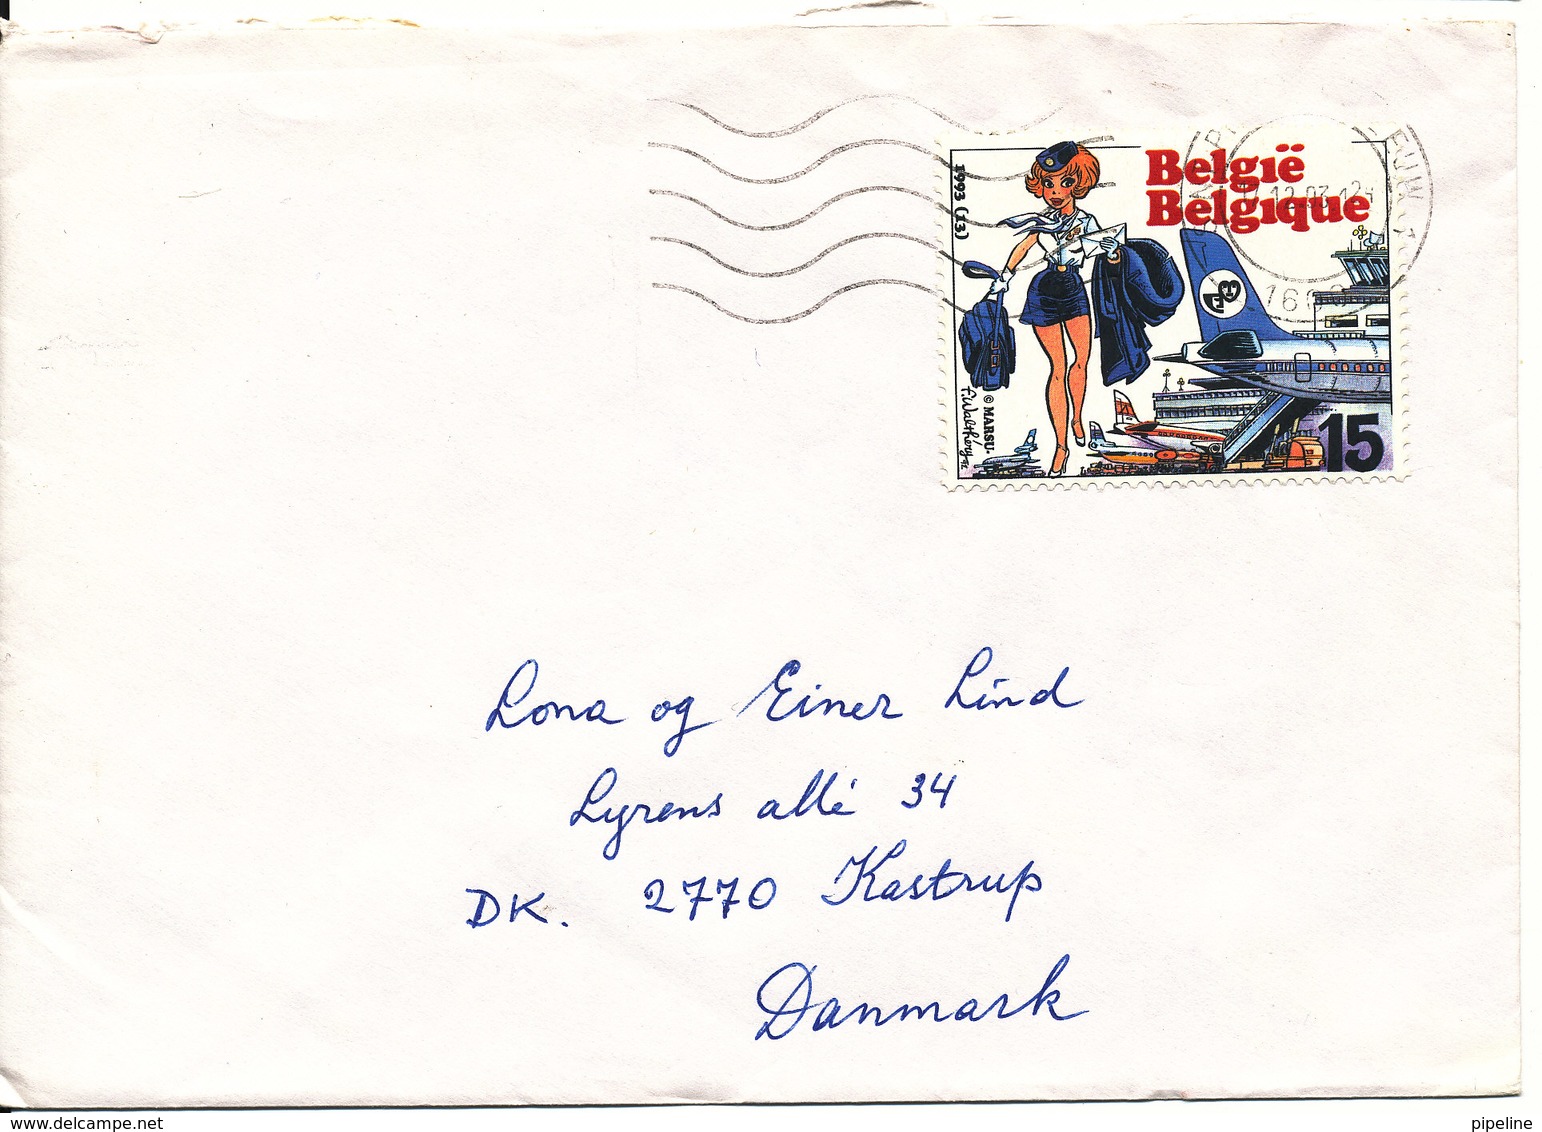 België
Belgique
1993 (13)
© MARSU-
F. Walthéry 92
15
Lona og Einer Lind
Lyrens allé 34
DK. 2770 Kastrup
Danmark
www.delcampe.net
pipeline